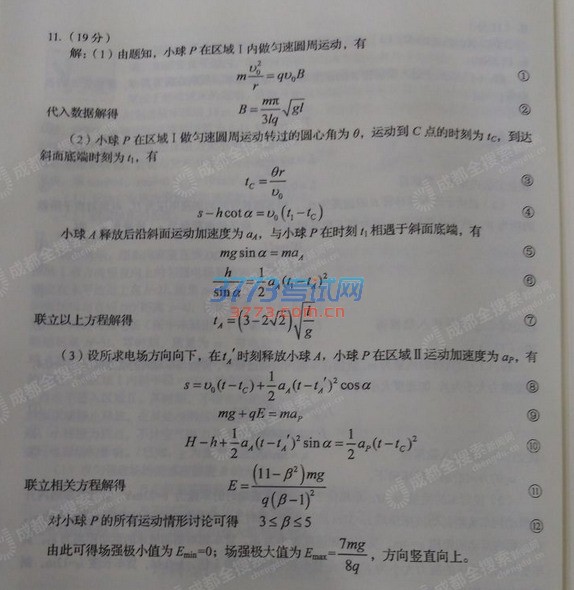 11.（19分）
解：（1）由题知，小球P在区域Ⅰ内做匀速圆周运动，有
m v₀²/r = qv₀B ①
代入数据解得 B = mπ/3lq √gl ②
（2）小球P在区域Ⅰ做匀速圆周运动转过的圆心角为θ，运动到C点的时刻为t_C，到达
斜面底端时刻为t₁，有
t_C = θr/v₀ ③
s－hcotα = v₀(t₁－t_C) ④
小球A释放后沿斜面运动加速度为a_A，与小球P在时刻t₁相遇于斜面底端，有
mg sinα = ma_A ⑤
h/sinα = 1/2 a_A(t₁－t_A)² ⑥
3773考试网
www.3773.com.cn
联立以上方程解得 t_A = (3－2√2)√(l/g) ⑦
（3）设所求电场方向向下，在t_A′时刻释放小球A，小球P在区域Ⅱ运动加速度为a_P，有
s = v₀(t－t_C)+1/2 a_A(t－t_A′)² cosα ⑧
mg + qE = ma_P ⑨
H－h+1/2 a_A(t－t_A′)² sinα = 1/2 a_P(t－t_C)² ⑩
联立相关方程解得 E = (11－β²)mg / q(β－1)² ⑪
对小球P的所有运动情形讨论可得 3≤β≤5 ⑫
由此可得场强极小值为E_min=0；场强极大值为E_max = 7mg/8q，方向竖直向上。
成都全搜索